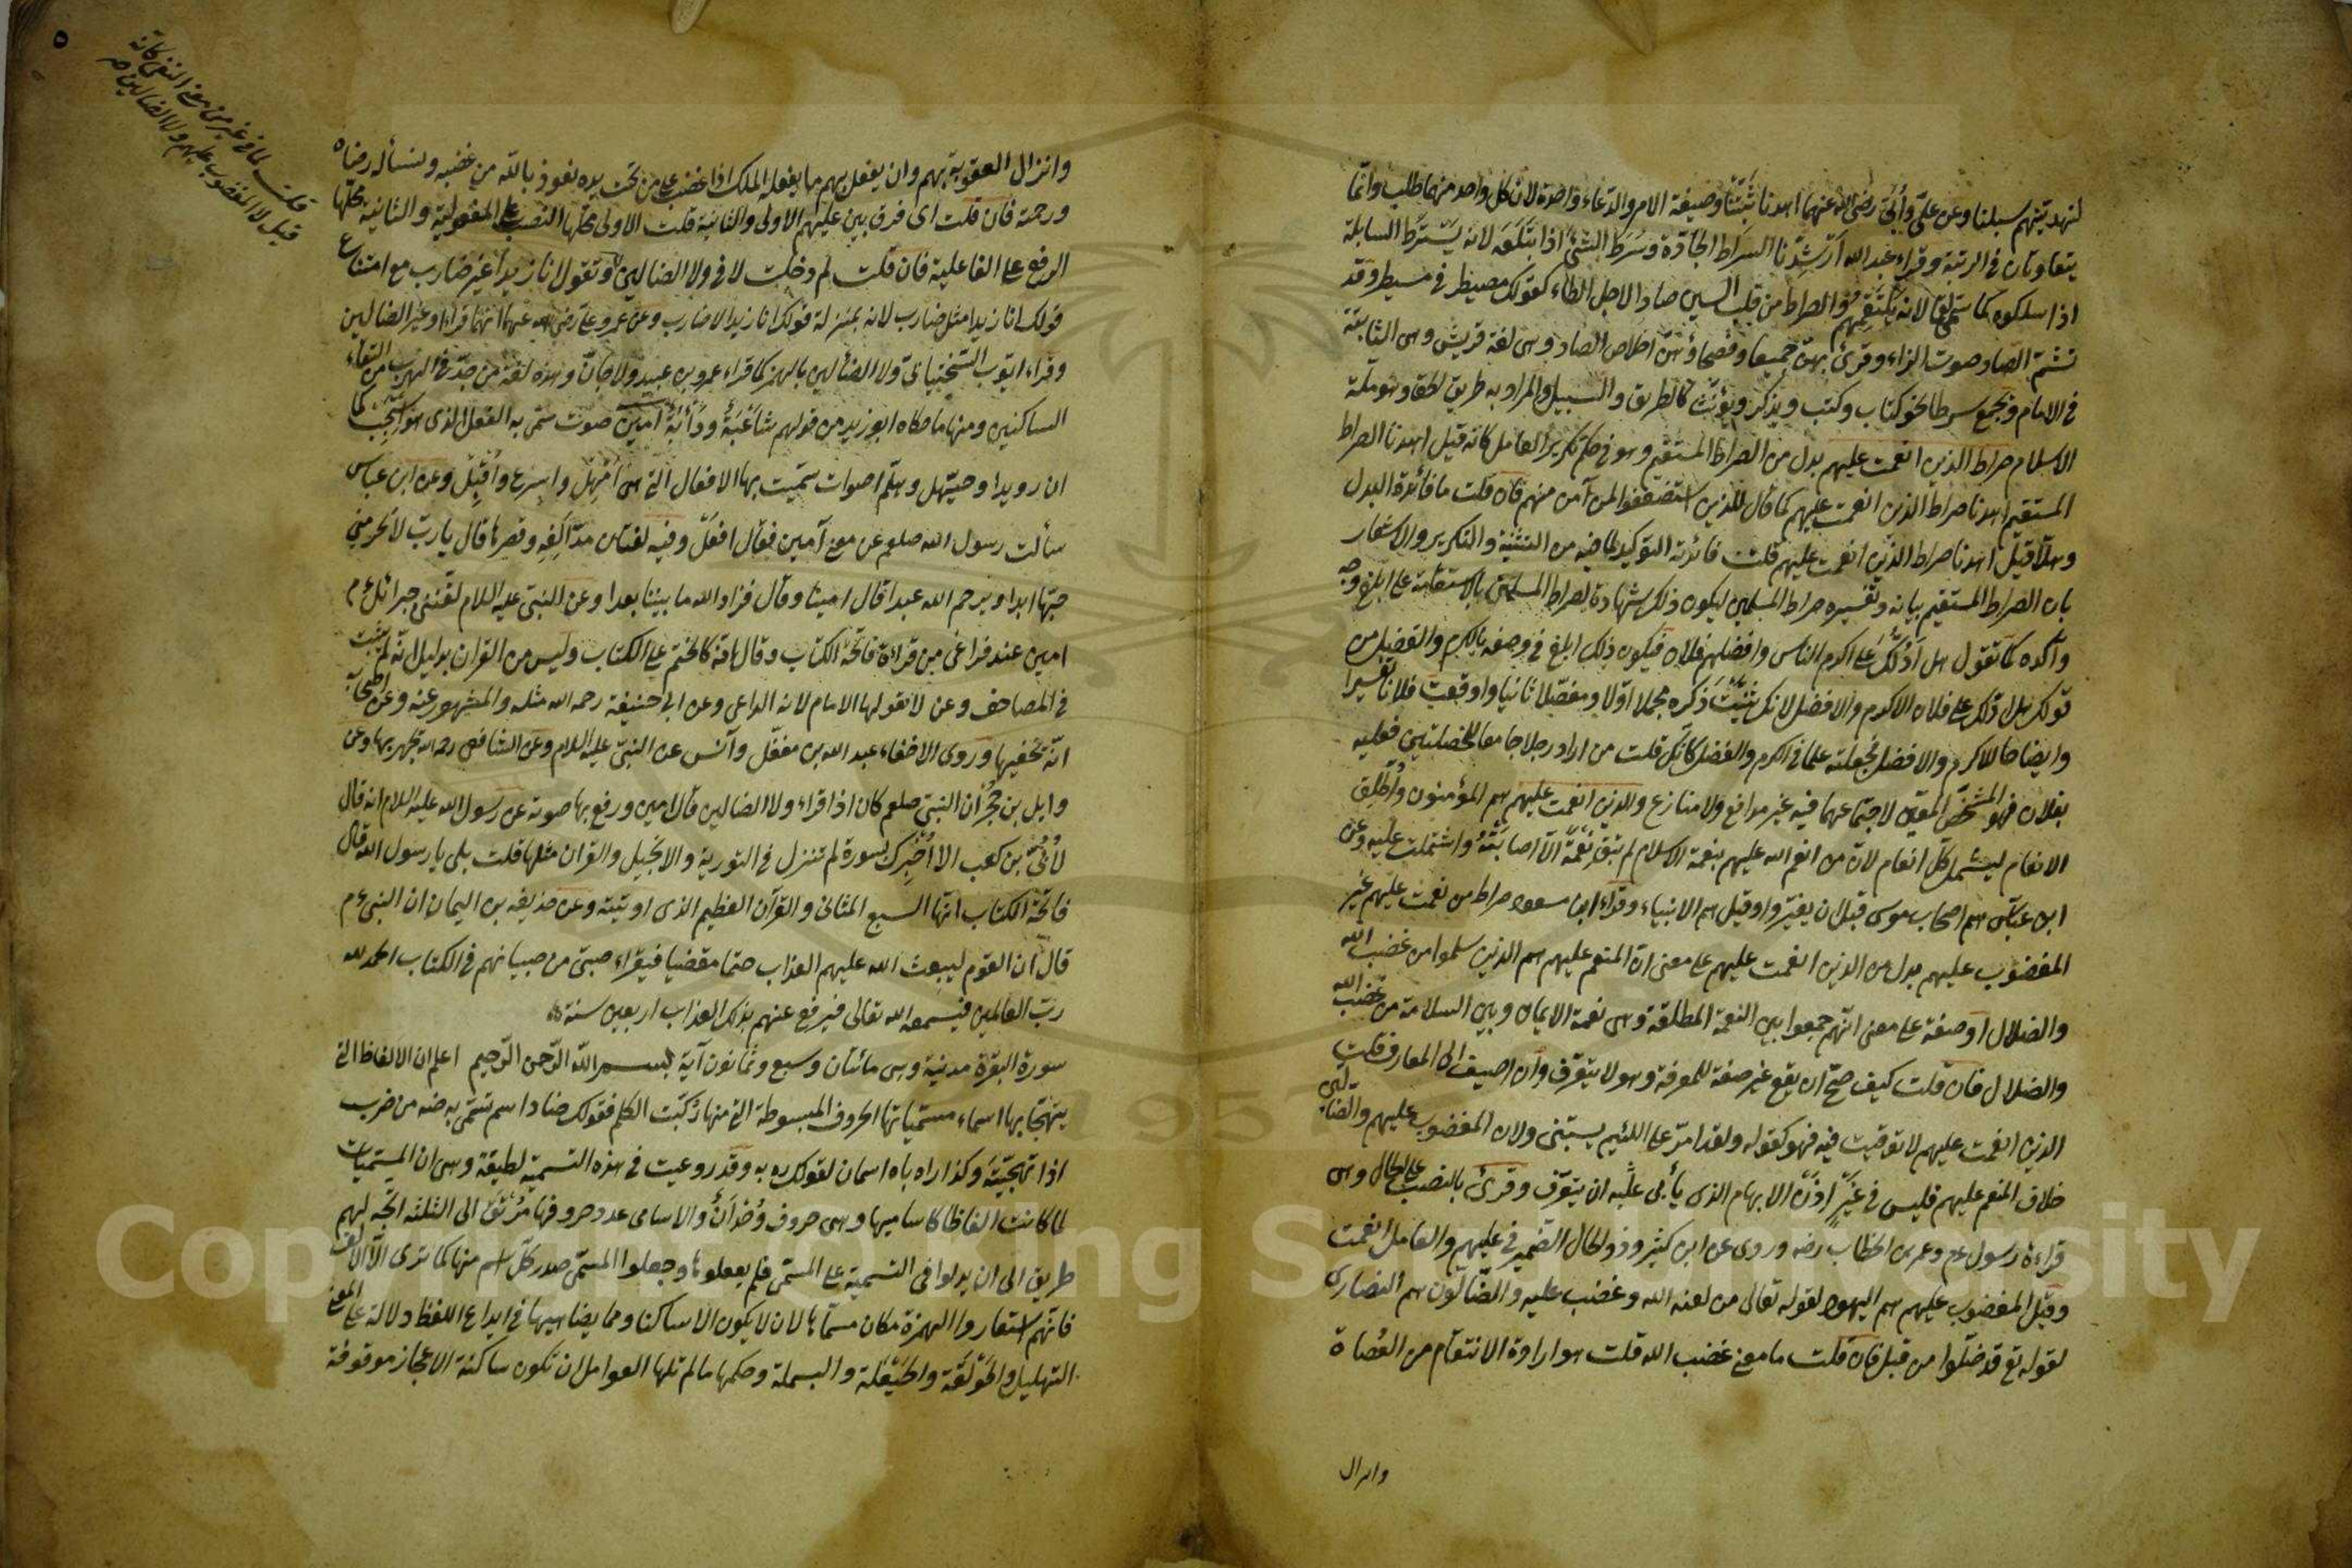 لنهدينهم سبلنا وعن علي وأبي رضي الله عنهما اهدنا ثبتنا وصيغة الامر والدعاء واحدة لان كل واحد منهما طلب وانما
يتفاوتان في الرتبة وقراء عبد الله ارشدنا السراط الجادة من سرط الشئ اذا ابتلعه لانه يسترط السابلة
اذا سلكوه كما سمي لقما لانه يلتقمهم والصراط من قلب السين صادا لاجل الطاء كقولك مصيطر في مسيطر وقد
تشم الصاد صوت الزاء وقرئ بهن جميعا وفصحاؤهن اخلاص الصاد وهى لغة قريش وهى الثابتة
في الامام ويجمع سرطا نحو كتاب وكتب ويذكر ويؤنث كالطريق والسبيل والمراد به طريق الحق وهو ملة
الاسلام صراط الذين انعمت عليهم بدل من الصراط المستقيم وهو في حكم تكرير العامل كانه قيل اهدنا الصراط
المستقيم اهدنا صراط الذين انعمت عليهم كما قال للذين استضعفوا لمن آمن منهم فان قلت ما فائدة البدل
وهلا قيل اهدنا صراط الذين انعمت عليهم قلت فائدته التوكيد لما فيه من التثنية والتكرير والاشعار
بان الصراط المستقيم بيانه وتفسيره صراط المسلمين ليكون ذلك شهادة لصراط المسلمين بالاستقامة على ابلغ وجه
وآكده كما تقول هل ادلك على اكرم الناس وافضلهم فلان فيكون ذلك ابلغ في وصفه بالكرم والفضل من
قولك هل ادلك على فلان الاكرم والافضل لانك ثنيت ذكره مجملا اولا ومفصلا ثانيا واوقعت فلانا تفسيرا
وايضاحا للاكرم والافضل فجعلته علما في الكرم والفضل كانك قلت من اراد رجلا جامعا للخصلتين فعليه
بفلان فهو المشخص المعين لاجتماعهما فيه غير مدافع ولا منازع والذين انعمت عليهم هم المؤمنون واطلق
الانعام ليشمل كل انعام لان من انعم الله عليهم بنعمة الاسلام لم تبق نعمة الا اصابته واشتملت عليه وعن
ابن عباس هم اصحاب موسى قبل ان يغيروا وقيل هم الانبياء وقراء ابن مسعود صراط من نعمت عليهم غير
المغضوب عليهم بدل من الذين انعمت عليهم على معنى ان المنعم عليهم هم الذين سلموا من غضب الله
والضلال او صفة على معنى انهم جمعوا بين النعمة المطلقة وهى نعمة الايمان وبين السلامة من غضب الله
والضلال فان قلت كيف صح ان يقع غير صفة للمعرفة وهو لا يتعرف وان اضيف الى المعارف قلت
الذين انعمت عليهم لا توقيت فيه فهو كقوله ولقد امر على اللئيم يسبنى ولان المغضوب عليهم والضالين
خلاف المنعم عليهم فليس في غير اذن الابهام الذى يأبى عليه ان يتعرف وقرئ بالنصب على الحال وهى
قراءة رسول عم وعمر بن الخطاب رضه وروى عن ابن كثير وذو الحال الضمير في عليهم والعامل انعمت
وقيل المغضوب عليهم هم اليهود لقوله تعالى من لعنه الله وغضب عليه والضالون هم النصارى
لقوله تع قد ضلوا من قبل فان قلت ما معنى غضب الله قلت هو ارادة الانتقام من العصاة
وانزال
٥
قلت لما في غير من معنى النفى كانه
قيل لا المغضوب عليهم ولا الضالين صح
وانزال العقوبة بهم وان يفعل بهم ما يفعله الملك اذا غضب على من تحت يده نعوذ بالله من غضبه ونسأله رضاه
ورحمة فان قلت اى فرق بين عليهم الاولى والثانية قلت الاولى محلها النصب على المفعولية والثانية محلها
الرفع على الفاعلية فان قلت لم دخلت لا في ولا الضالين وتقول انا زيدا غير ضارب مع امتناع
قولك انا زيدا مثل ضارب لانه بمنزلة قولك انا زيدا لا ضارب وعن عمر وعلي رضي الله عنهما انهما قراءا وغير الضالين
وقراء ايوب السختيانى ولا الضألين بالهمز كما قراء عمرو بن عبيد ولا جأن وهذه لغة من جد في الهرب من التقاء
الساكنين ومنها ما حكاه ابو زيد من قولهم شأبة ودأبة آمين صوت سمى به الفعل الذى هو استجب كما
ان رويدا وحيهل وهلم اصوات سميت بها الافعال التى هى امهل واسرع واقبل وعن ابن عباس
سألت رسول الله صلعم عن معنى آمين فقال افعل وفيه لغتان مد الفه وقصرها قال يا رب لا تحرمني
حبها ابدا ويرحم الله عبدا قال امينا وقال فزاد الله ما بيننا بعدا وعن النبى عليه السلام لقننى جبرائل عم
امين عند فراغى من قراءة فاتحة الكتاب وقال انه كالختم على الكتاب وليس من القران بدليل انه لم يثبت
في المصاحف وعن لا يقولها الامام لانه الداعى وعن ابى حنيفة رحمه الله مثله والمشهور عنه وعن اصحابه
انه يخفيها وروى الاخفاء عبد الله بن مغفل وانس عن النبى عليه السلام وعن الشافعى رحمه الله يجهر بها وعن
وايل بن حجر ان النبى صلعم كان اذا قراء ولا الضالين قال امين ورفع بها صوته عن رسول الله عليه السلام انه قال
لأبي بن كعب الا اخبرك بسورة لم تنزل في التورية والانجيل والقران مثلها قلت بلى يا رسول الله قال
فاتحة الكتاب انها السبع المثانى والقرآن العظيم الذى اوتيته وعن حذيفة بن اليمان ان النبى عم
قال ان القوم ليبعث الله عليهم العذاب حتما مقضيا فيقراء صبى من صبيانهم في الكتاب الحمد لله
رب العالمين فيسمعه الله تعالى فيرفع عنهم بذلك العذاب اربعين سنة
سورة البقرة مدنية وهى مائتان وسبع وثمانون آية بسم الله الرحمن الرحيم اعلم ان الالفاظ التى
يتهجا بها اسماء مسمياتها الحروف المبسوطة التى منها ركبت الكلم فقولك ضاد اسم سمى به ضه من ضرب
اذا تهجيته وكذا را با اسمان لقولك ره به وقد روعيت في هذه التسمية لطيفة وهى ان المسميات
لما كانت الفاظا كاساميها وهى حروف وحدان والاسامى عدد حروفها مرتق الى الثلثة اتجه لهم
طريق الى ان يدلوا في التسمية على المسمى فلم يغفلوها وجعلوا المسمى صدر كل اسم منها كما ترى الا الالف
فانهم استعاروا الهمزة مكان مسماها لان لا يكون الا ساكنا ومما يضاهيها في ايداع اللفظ دلالة على المعنى
التهليل والحولقة والحيعلة والبسملة وحكمها ما لم تلها العوامل ان تكون ساكنة الاعجاز موقوفة
Copyright © King Saud University
1957